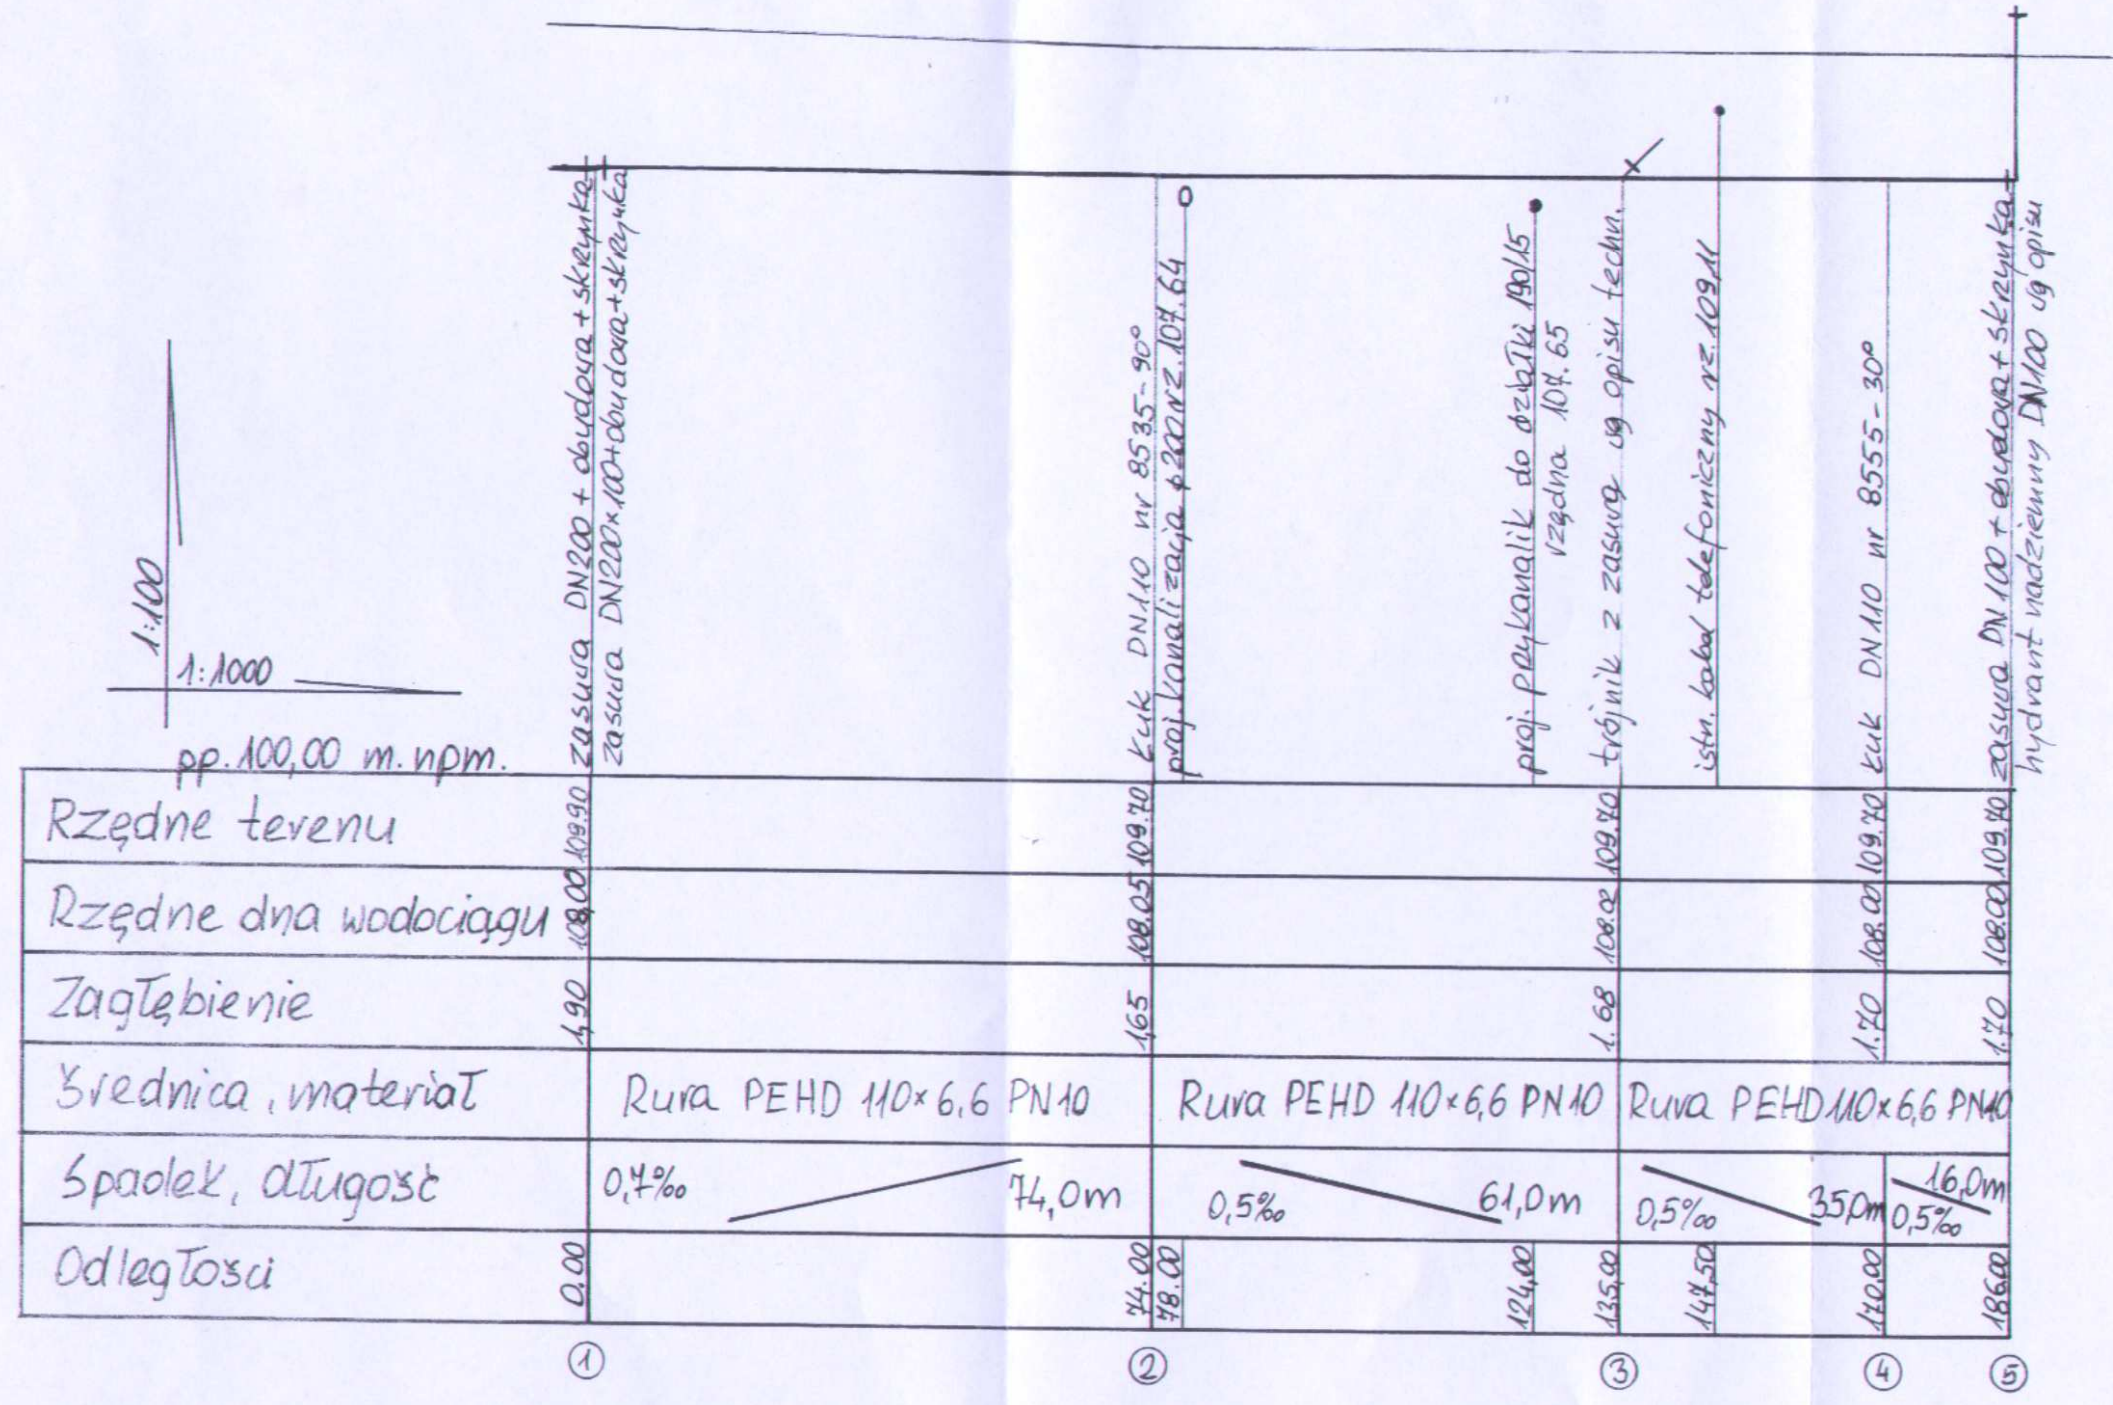 1:100
1:1000
pp. 100,00 m. npm.
zasuwa DN200 + obudowa + skrzynka
zasuwa DN200×100 + obudowa + skrzynka
Łuk DN110 nr 8535-90°
proj. kanalizacja ø200 rz. 107.64
proj przykanalik do działki 190/15
rzędna 107.65
trójnik z zasuwą wg opisu techn.
istn. kabel telefoniczny rz. 109,11
Łuk DN110 nr 8555-30°
zasuwa DN100 + obudowa + skrzynka
hydrant nadziemny DN100 wg opisu
Rzędne terenu 109.90 109.70 109.70 109.70 109.70
Rzędne dna wodociągu 108.00 108.05 108.02 108.00 108.00
Zagłębienie 1,90 1,65 1.68 1.70 1.70
Średnica, materiał Rura PEHD 110×6,6 PN10 Rura PEHD 110×6,6 PN10 Rura PEHD 110×6,6 PN10
Spadek, długość 0,7‰ 74,0m 0,5‰ 61,0m 0,5‰ 35,0m 0,5‰ 16,0m
Odległości 0.00 74.00 78.00 124,00 135,00 147,50 170,00 186,00
1 2 3 4 5